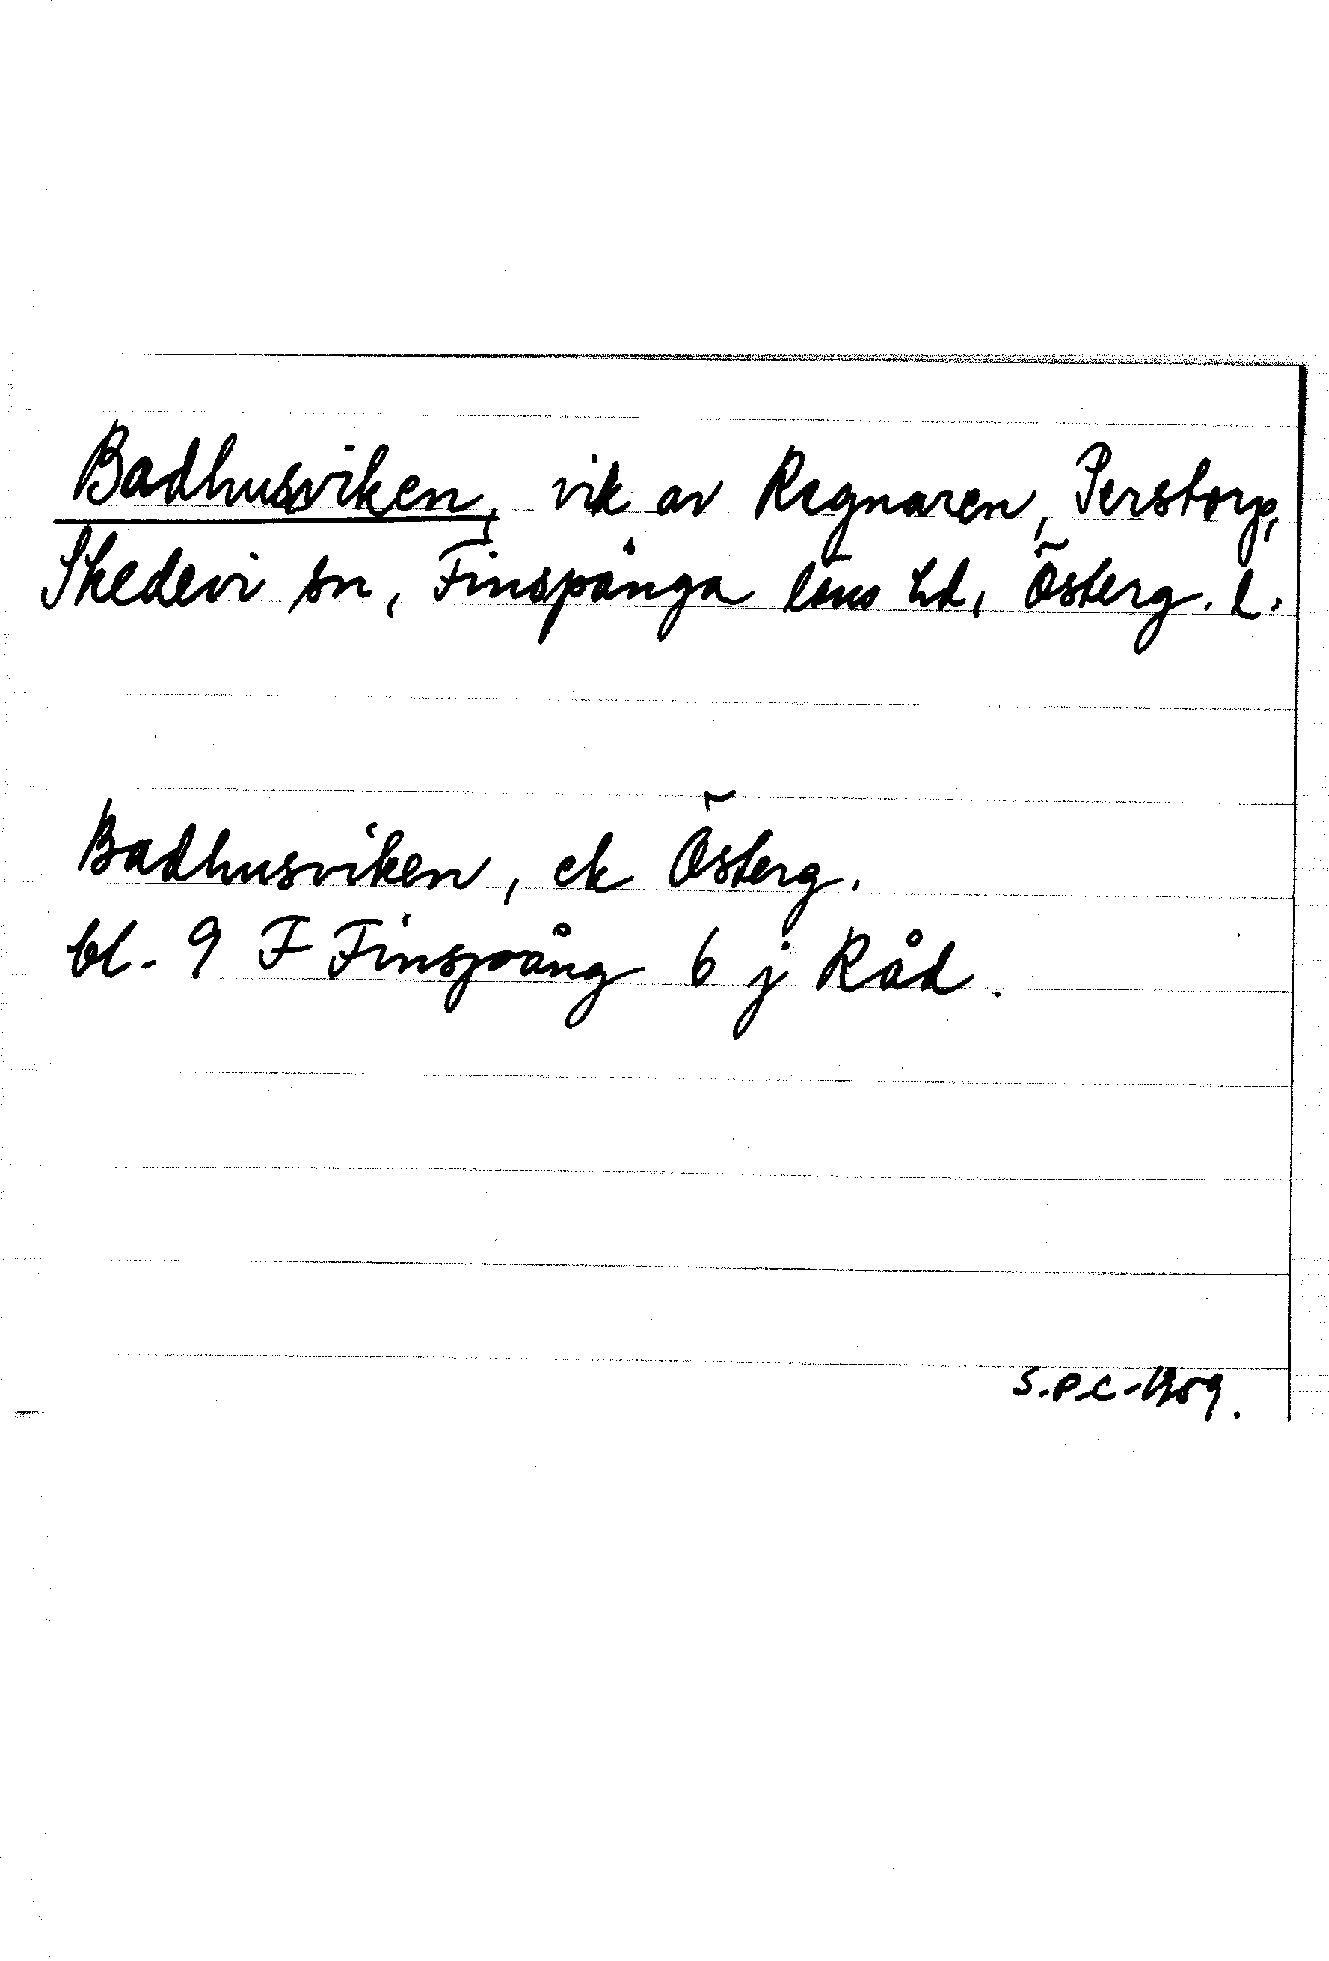 Badhusviken, vik av Regnaren, Perstorp,
Skedevi sn, Finspånga läns hd, Österg. l.
Badhusviken, ek Österg.
bl. 9 F Finspång 6 j Råd.
S.P.C-1959.